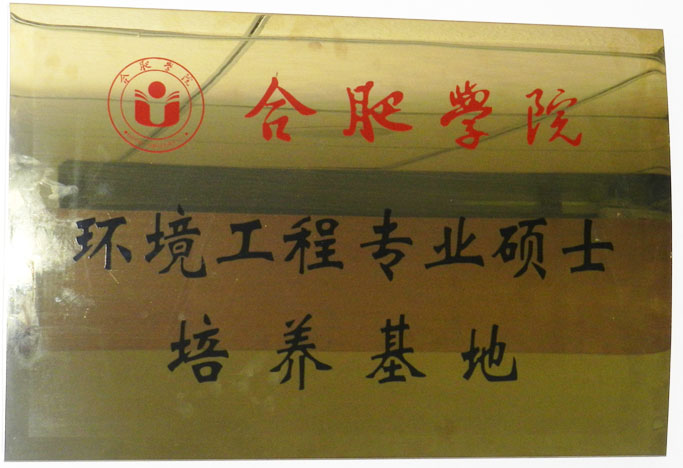 合肥学院
合肥学院
环境工程专业硕士
培养基地